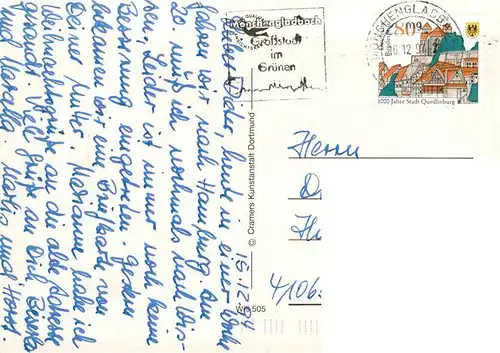 15.12.94
Lieber Dieter, heute in einer Woche
fahren wir nach Hamburg. Am
20. muß ich nochmals nach Düs-
sel. Leider ist immer noch keine
Besserung eingetreten. gestern
bekamen wir eine Briefkarte von
Deiner Mutter. Marianne habe ich
Weihnachtsgrüße an die alte Adresse
gesandt. Viele Grüße an Dich
und Horst.
Mönchengladbach
Großstadt
im
Grünen
MÖNCHENGLADBACH
16.12.94
80
1000 Jahre Stadt Quedlinburg
Herrn
D
H
4106
© Cramers Kunstanstalt Dortmund
Wo 505